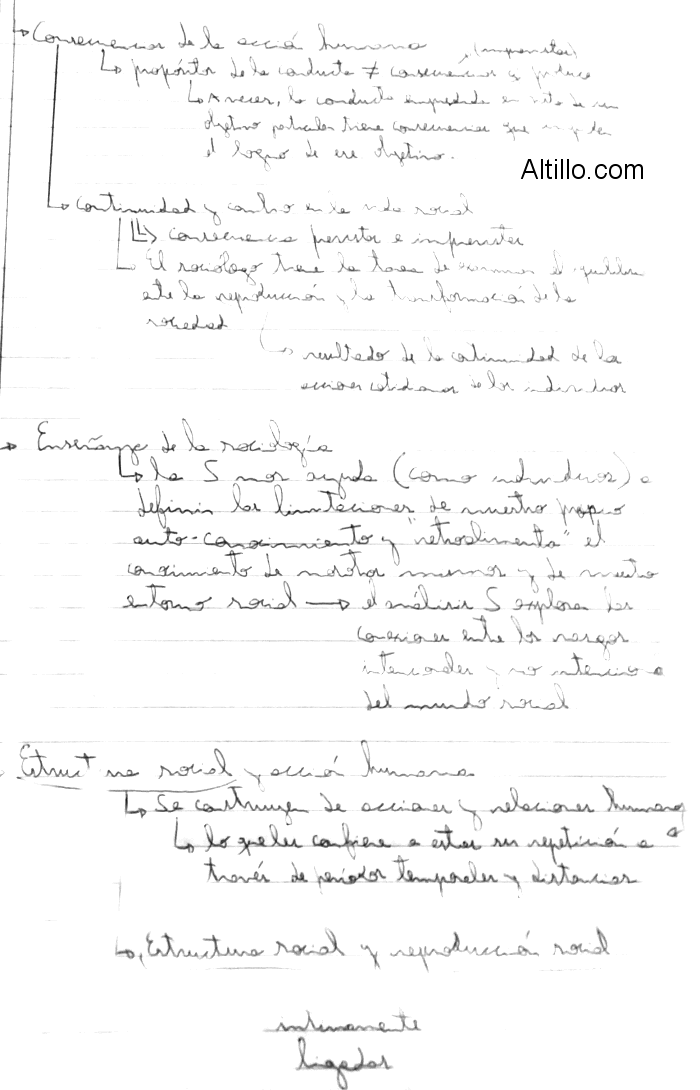 ↳ Consecuencias de la acción humana
(imprevistas)
↳ propósitos de la conducta ≠ consecuencias q produce
↳ A veces, la conducta emprendida en vista de un
objetivo particular tiene consecuencias que impiden
el logro de ese objetivo.
Altillo.com
↳ Continuidad y cambio en la vida social
↳ consecuencias previstas e imprevistas
↳ El sociólogo tiene la tarea de examinar el equilibrio
ate la reproducción y la transformación de la
sociedad
↳ resultado de la continuidad de las
acciones cotidianas de los individuos
→ Enseñanza de la sociología
↳ la S nos ayuda (como individuos) a
definir las limitaciones de nuestro propio
auto-conocimiento y "retroalimenta" el
conocimiento de nosotros mismos y de nuestro
entorno social → el análisis S explora las
conexiones ente los rasgos
intencionales y no intenciona
del mundo social
Estruct ura social y acción humana
↳ Se construyen de acciones y relaciones humanas
↳ lo que les confiere a estas su repetición a
través de períodos temporales y distancias
↳ Estructura social y reproducción social
intimamente
ligados